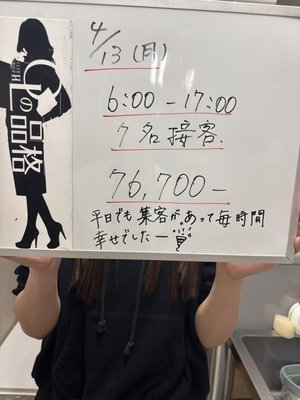 OLの品格
4/13(月)
6:00-17:00
7名接客.
76,700-
平日でも集客があって毎時間
幸せでしたー